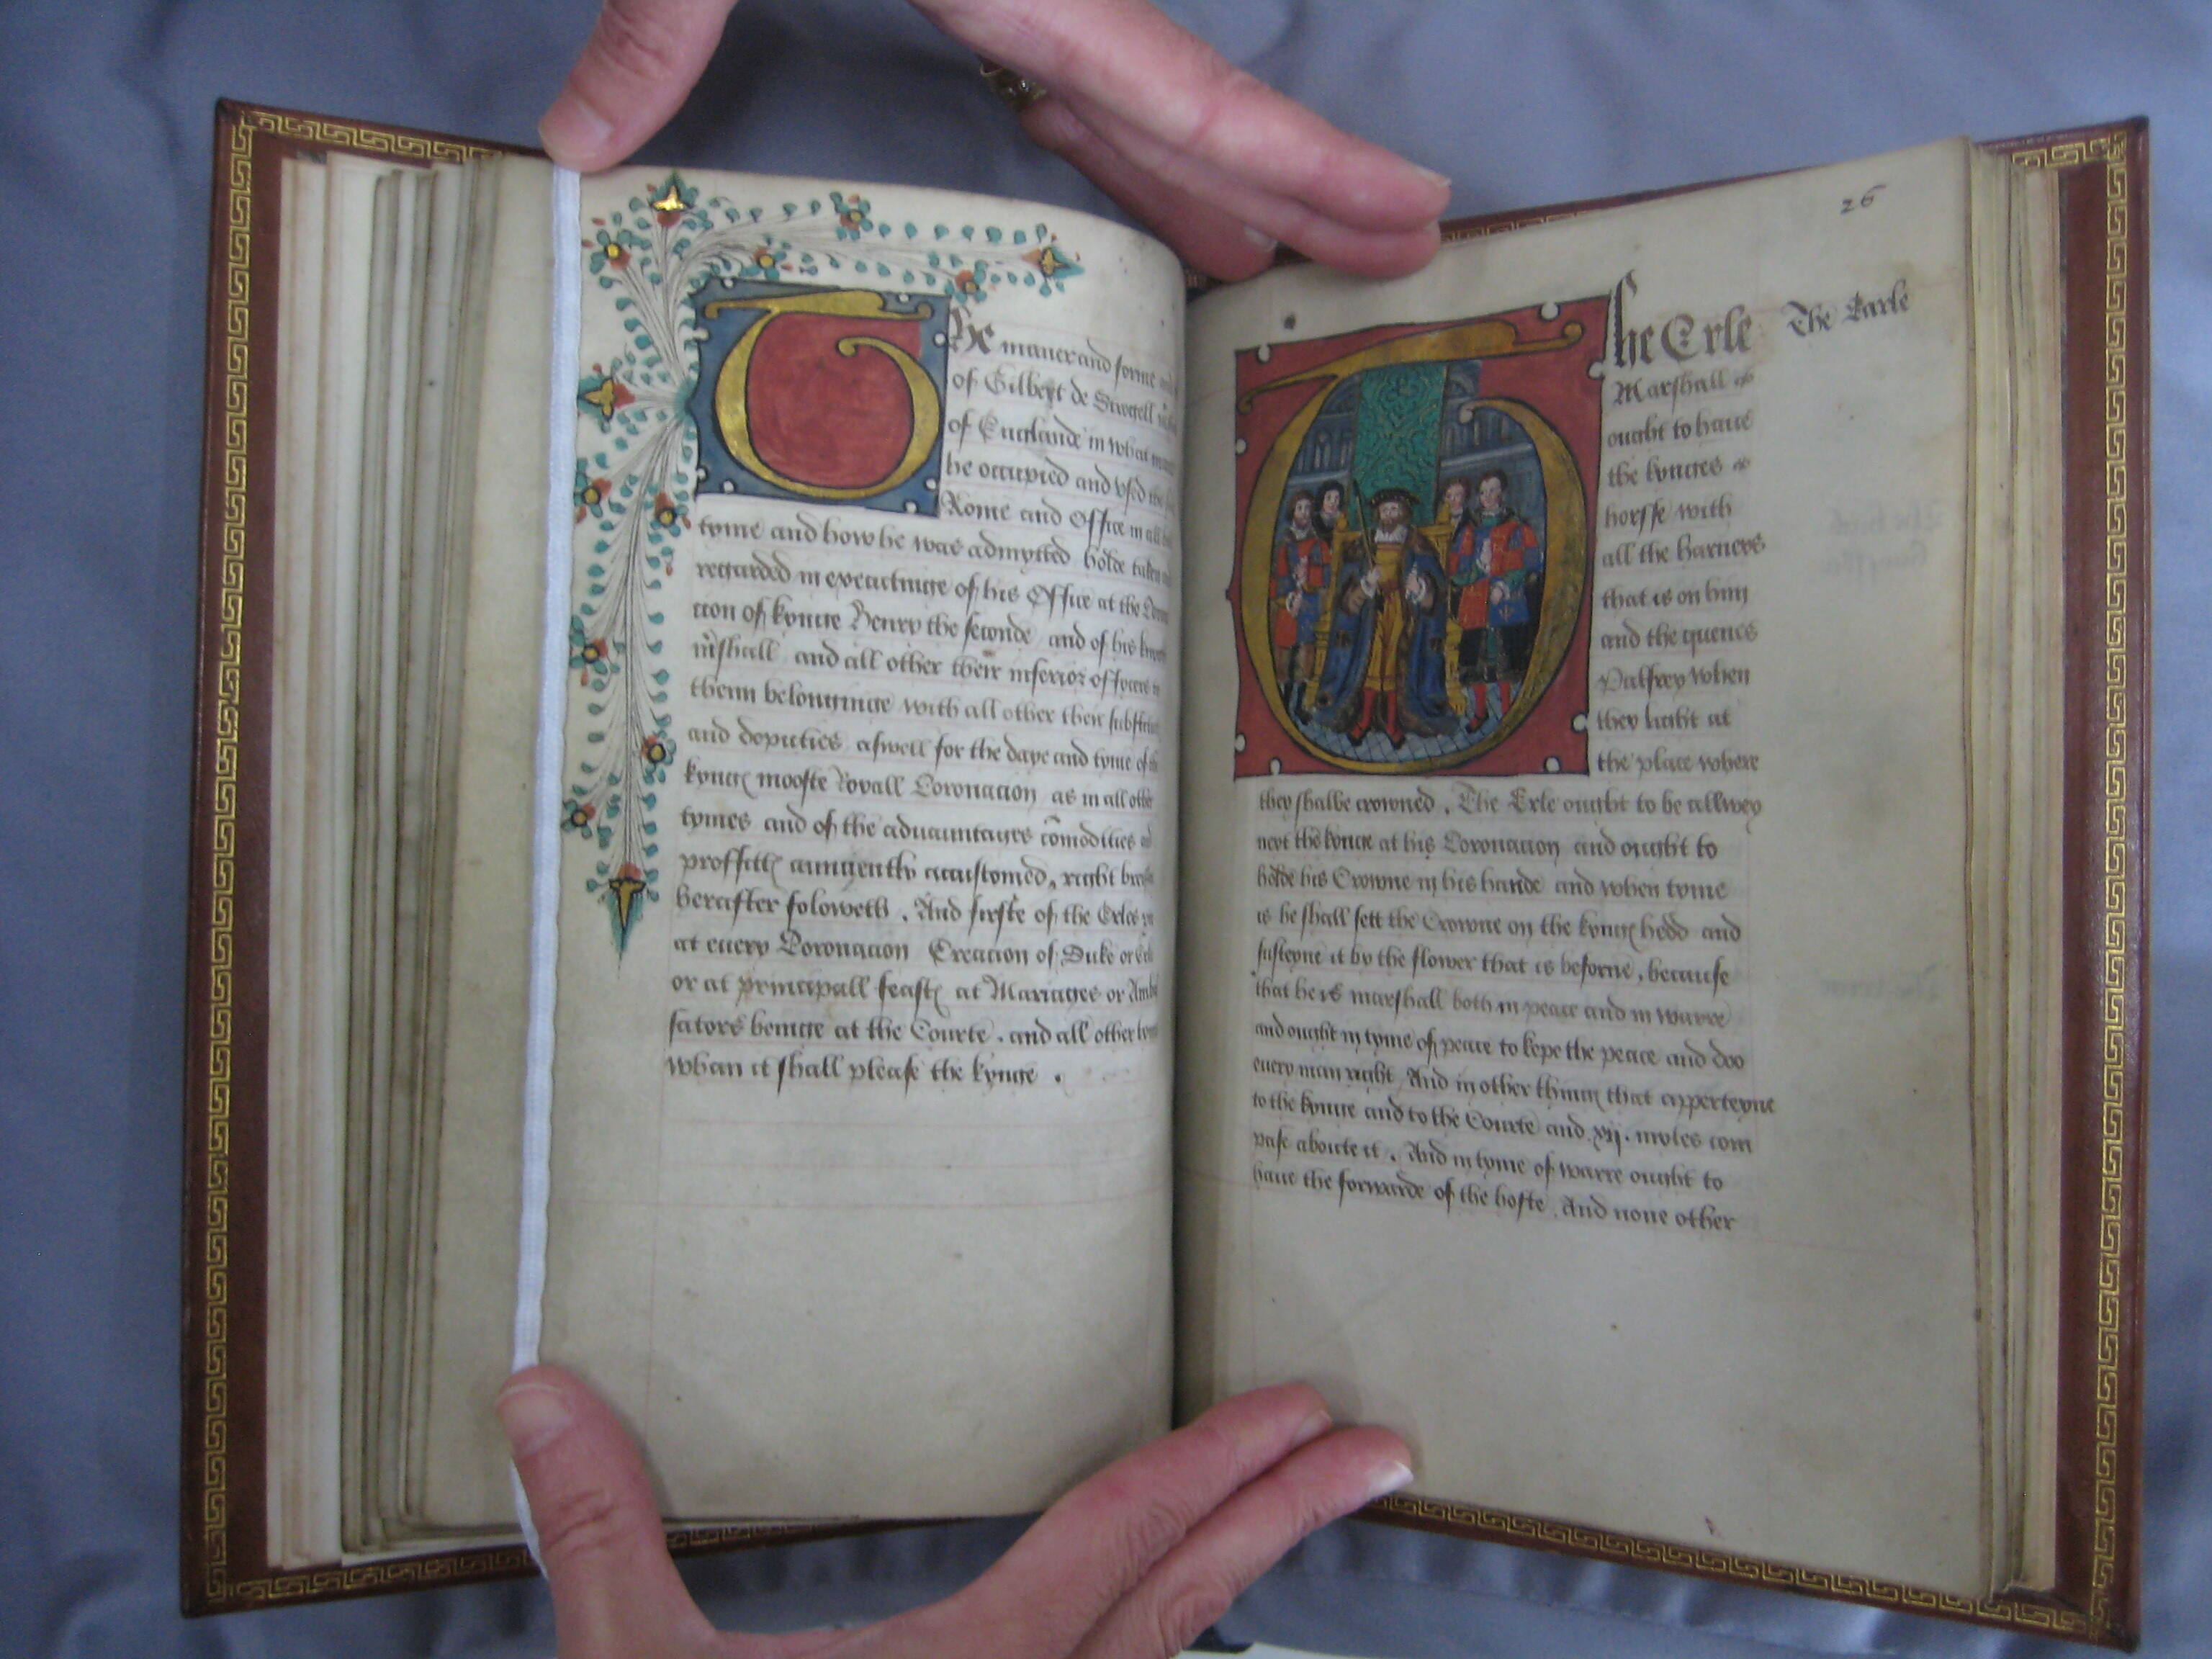 The maner and forme
of Gilbert de Strogell
of Englande in what
he occupied and vsed the
Rome and Office in all
tyme and how he was admytted holde taken
regarded in execuchinge of his Office at the
cion of kynge Henry the seconde and of his
m̃shall and all other their inferior officers
them belonginge with all other their
and deputies aswell for the daye and tyme of the
kynges mooste Royall Coronacion as in all other
tymes and of the aduauntages cõmodities
proffittes aunciently accustomed, right
herafter foloweth. And firste of the Erles
at euery Coronacion Creacion of Duke or Erle
or at principall feastes at Mariages or
sators beinge at the Courte. and all other
whan it shall please the kynge.
26
The Erle The Earle
Marshall
ought to haue
the kynges
horsse with
all the harneys
that is on him
and the quenes
Palfrey when
they light at
the place where
they shalbe crowned. The Erle ought to be allwey
next the kynge at his Coronacion and ought to
holde his Crowne in his hande and when tyme
is he shall sett the Crowne on the kynges hedd and
susteyne it by the flower that is beforne, because
that he is marshall both in peace and in warre
and ought in tyme of peace to kepe the peace and doo
euery man right. And in other thinges that apperteyne
to the kynge and to the Courte and .xij. myles com
pase aboute it. And in tyme of warre ought to
haue the forwarde of the hoste. And none other